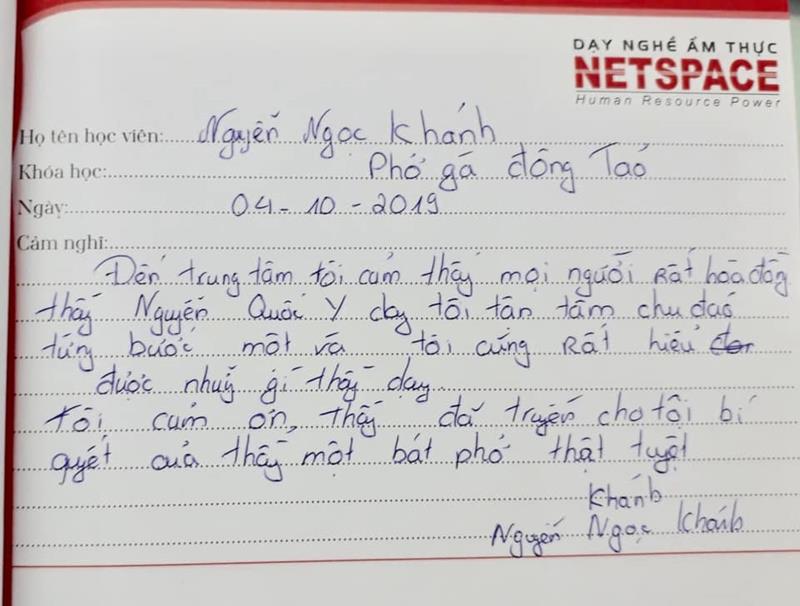 DẠY NGHỀ ẨM THỰC
NETSPACE
Human Resource Power
Họ tên học viên: Nguyễn Ngọc Khánh
Khóa học: Phở gà đông Tảo
Ngày: 04 - 10 - 2019
Cảm nghĩ:
Đến trung tâm tôi cảm thấy mọi người Rất hòa đồng
thầy Nguyễn Quốc Y dạy tôi tận tâm chu đaó
từng bước một và tôi cũng Rất hiểu
được nhuữ gì thầy dạy.
Tôi cảm ơn, thầy đã truyền cho tôi bí
quyết của thầy một bát phở thật tuyệt
Khánh
Nguyễn Ngọc Khánh